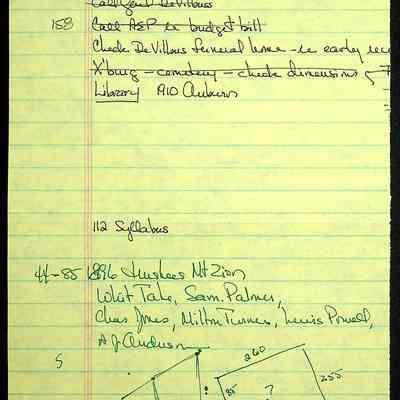 Call Gent DeVillows
158 Call ASP re budget bill
Check DeVillows funeral home - re early rec
X'burg - cemetery - check dimensions of
Library 1910 Auburns
112 Syllabus
44-85 1896 Trustees Mt Zion
Whit Tate, Sam. Palmer,
Chas Jones, Milton Turner, Lewis Powell,
A J Anderson
S
260
255
85
?